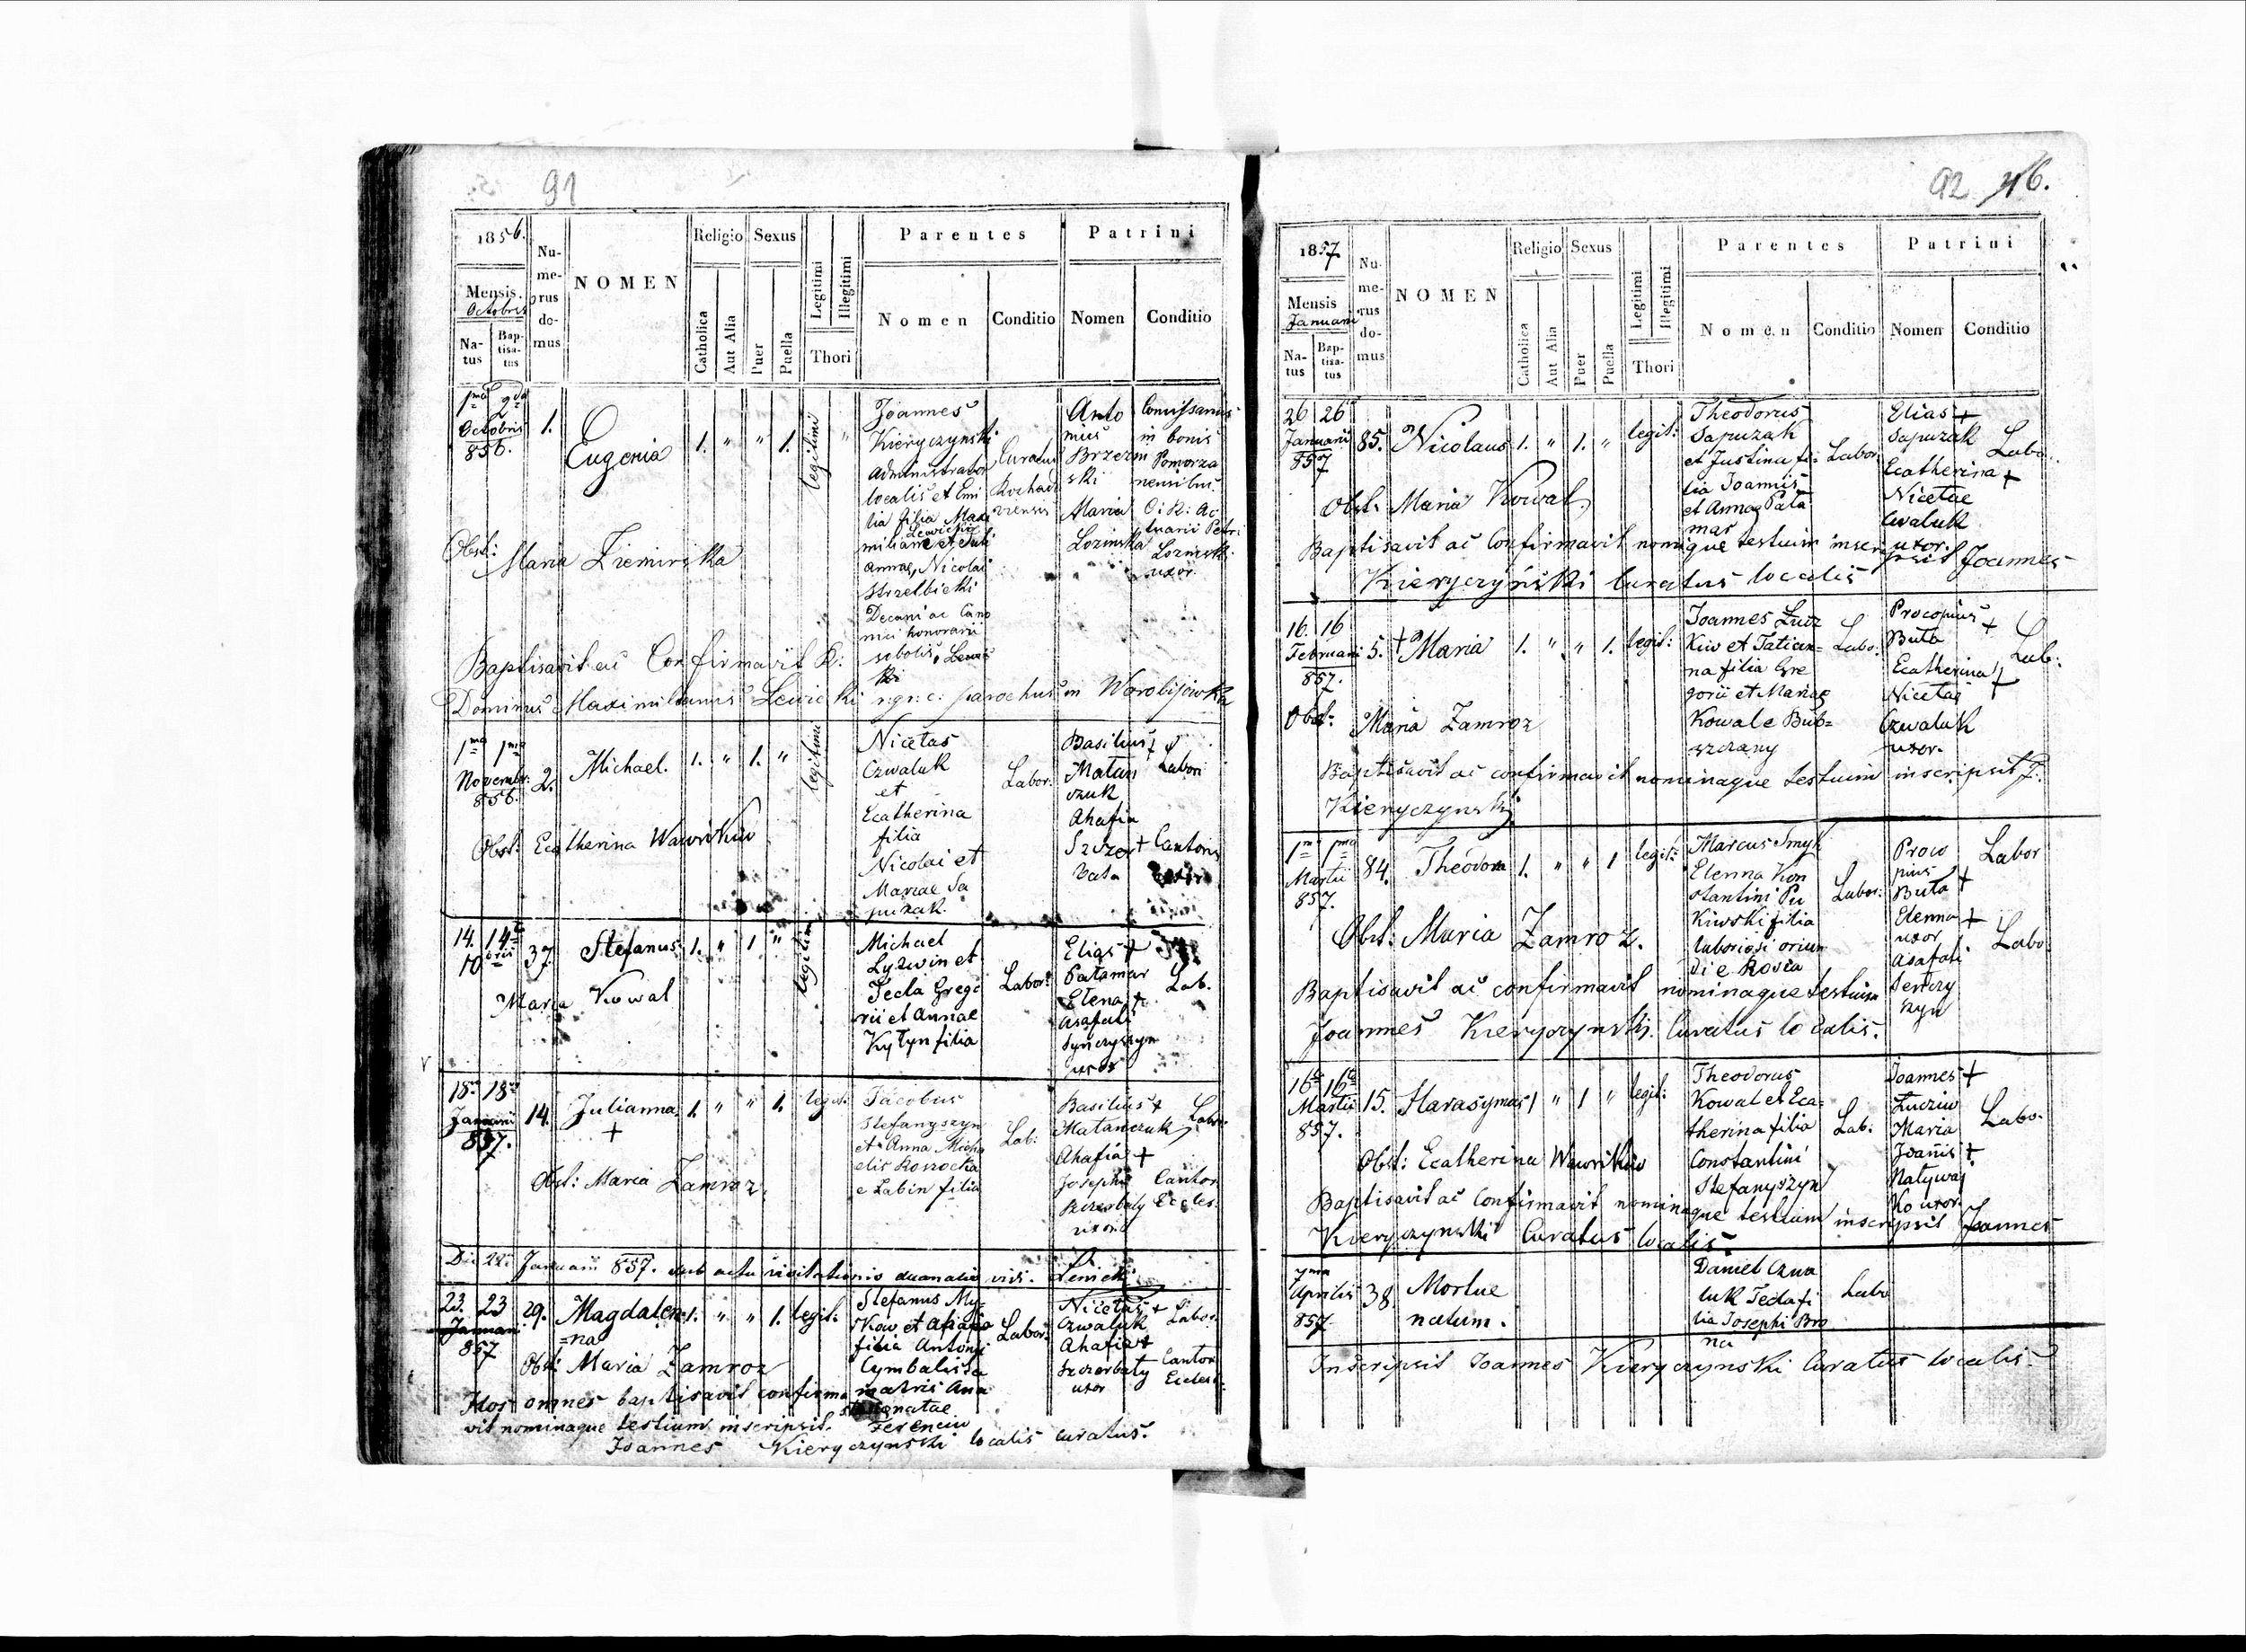 91
1856.
Mensis.
Octobris
Na-
tus
Bap-
tisa-
tus
Nu-
me-
rus
do-
mus
NOMEN
Religio
Catholica
Aut Alia
Sexus
Puer
Puella
Legitimi
Illegitimi
Thori
Parentes
Nomen
Conditio
Patrini
Nomen
Conditio
1ma 2da
Octobris
856.
1.
Eugenia
1. " " 1.
legitimi
"
Joannes
Kieryczynski
Administrator
localis et Emi
lia filia Maxi
miliani Lewicki et Juli
annae, Nicolai
Strzelbicki
Decani ac Cano
nici honorarii
sobolis, Lewic
ki
Curatus
Anto
nius
Brzezin
ski
Maria
Lozinska
Comissarius
in bonis
Pomorza
nensibus.
Petri
Lozinski
uxor.
Obst:
Maria Ziemirska
Baptisavit ac Confirmavit R:
Dominus Maximilianus Lewicki r: gr: c: parochus in Worobijowka
1ma 1ma
Novembr:
856.
2.
Michael.
1. " 1. "
legitimi
Nicetas
Czwaluk
et
Ecatherina
filia
Nicolai et
Mariae Sa
puzak.
Labor:
Basilius +
Matan
czuk
Ahafia
Szczer +
bata
Labor:
Cantoris
Obst: Ecatherina Wawrikiw
14. 14ta
10bris
37
Stefanus
1. " 1 "
legitimi
Michael
Lyzwin et
Tecla Grego
rii et Annae
Kytyn filia
Labor:
Elias +
Patamar
Elena +
Asafati
Synczyszyn
uxor
Lab.
Maria Kowal
18va 18va
Januarii
857.
14.
Julianna
+
1. " " 1.
legit:
Jacobus
Stefanyszyn
et Anna Micha
elis Kossocka
e Labin filia
Lab:
Basilius +
Matanczuk
Ahafia +
Josephi
Szczerbaty
uxor
Labor:
Cantor
Eccles.
Obst: Maria Zamroz.
Die 22 Januarii 857. sub actu visitationis decanalis vidi. Lewicki
23. 23
Januarii
857
29.
Magdalen
=na
1. " " 1.
legit:
Stefanus My
skow et Ahafia
filia Antonii
Cymbalista
matris Ana
natae
Ferenciw
Labor:
Nicetas +
Czwaluk
Ahafia +
Szczerbaty
uxor
Labor:
Cantor
Eccles:
Obst: Maria Zamroz
Hos omnes baptisavit confirma
vit nominaque testium inscripsit.
Joannes Kieryczynski localis curatus.
92 46.
1857.
Mensis
Januarii
Na-
tus
Bap-
tisa-
tus
Nu-
me-
rus
do-
mus
NOMEN
Religio
Catholica
Aut Alia
Sexus
Puer
Puella
Legitimi
Illegitimi
Thori
Parentes
Nomen
Conditio
Patrini
Nomen
Conditio
26 26
Januarii
857
85.
Nicolaus
1. " 1. "
legit:
Theodorus
Sapuzak
et Justina fi
lia Joannis
et Annae Pata
mar
Labor:
Elias +
Sapuzak
Ecatherina +
Nicetae
Czwaluk
uxor.
Labo:
Obst: Maria Kowal,
Baptisavit ac Confirmavit nominaque testium inscripsit Joannes
Kieryczyński Curatus localis
16. 16
Februarii
857.
5.
+ Maria
1. " " 1.
legit:
Joannes Łucz
kiw et Tatian=
na filia Gre
gorii et Mariae
Kowal e Bub=
szczany
Labo:
Procopius +
Buta
Ecatherina +
Nicetae
Czwaluk
uxor.
Lab:
Obst: Maria Zamroz
Baptisavit ac confirmavit nominaque testium inscripsit J.
Kieryczynski
1ma 1ma
Martii
857.
84.
Theodora
1. " " 1
legit:
Marcus Smyk
Elenna Kon
stantini Pu
kiwski filia
laboriosi oriun
di e Rosia
Labor:
Proco
pius
Buta +
Elenna +
uxor
Asafati
Senczy
szyn
Labor
Labo.
Obst: Maria Zamroz.
Baptisavit ac confirmavit nominaque testium
Joannes Kieryczynski. Curatus localis.
16ta 16ta
Martii
857.
15.
Harasymus
1 " 1 "
legit:
Theodorus
Kowal et Eca=
therina filia
Constantini
Stefanyszyn
Lab:
Joannes +
Łucziw
Maria
Joannis +
Natywaj
ko uxor
Labo:
Obst: Ecatherina Wawrikiw
Baptisavit ac Confirmavit nominaque testium inscripsit Joannes
Kieryczynski Curatus localis.
7ma
Aprilis
857
38
Mortue
natum.
Daniel Czwa
luk Tecla fi
lia Josephi Bro
na
Labo
Inscripsit Joannes Kieryczynski Curatus localis.